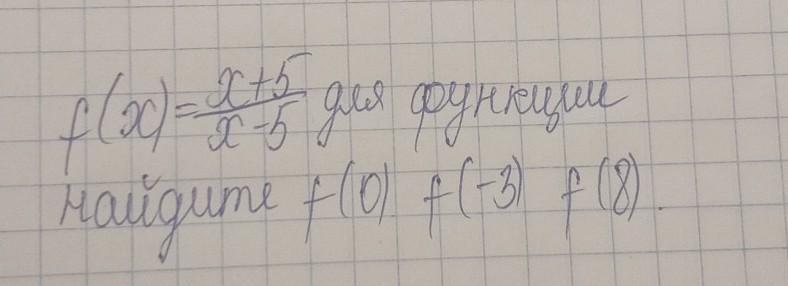 f(x)=\frac{x+5}{x-5} для функции
найдите f(0) f(-3) f(8).